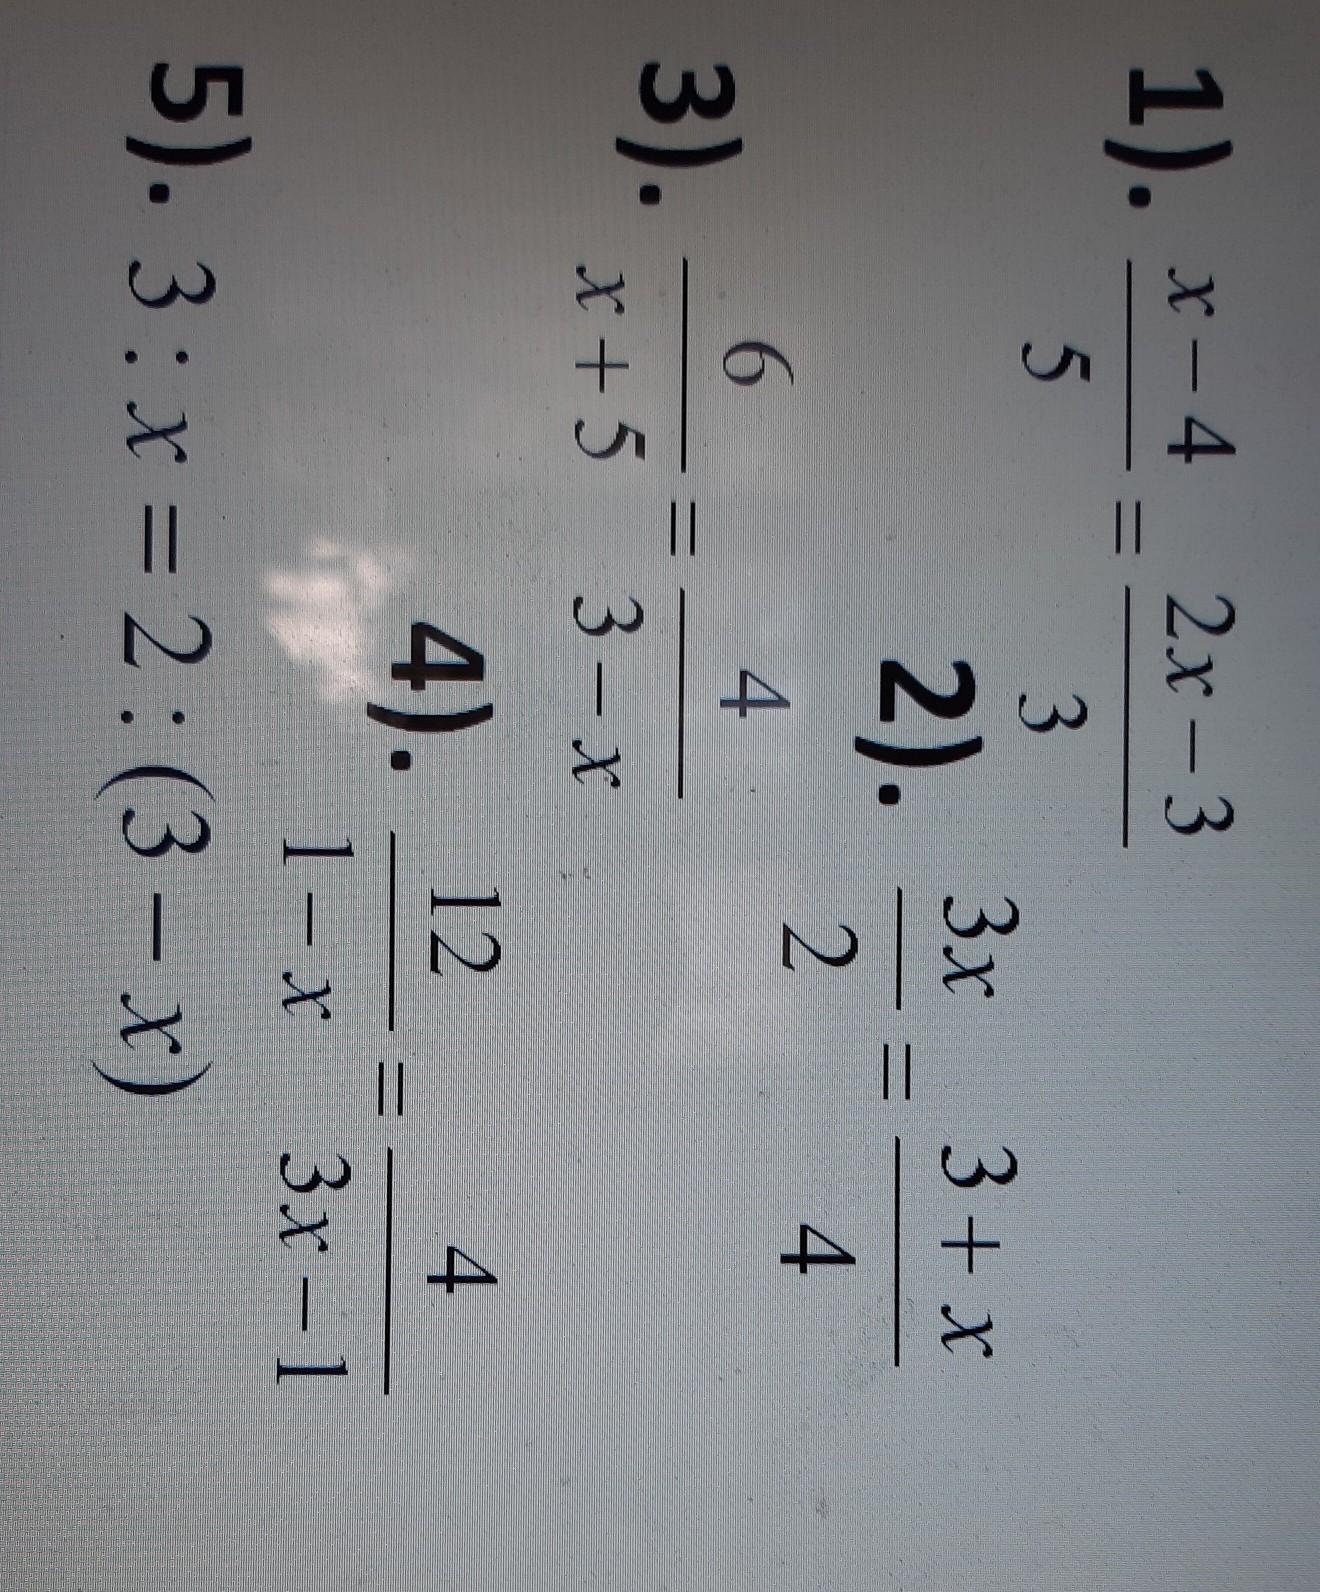 1). x − 4 / 5 = 2x − 3 / 3
2). 3x / 2 = 3 + x / 4
3). 6 / x + 5 = 4 / 3 − x
4). 12 / 1 − x = 4 / 3x − 1
5). 3 : x = 2 : (3 − x)